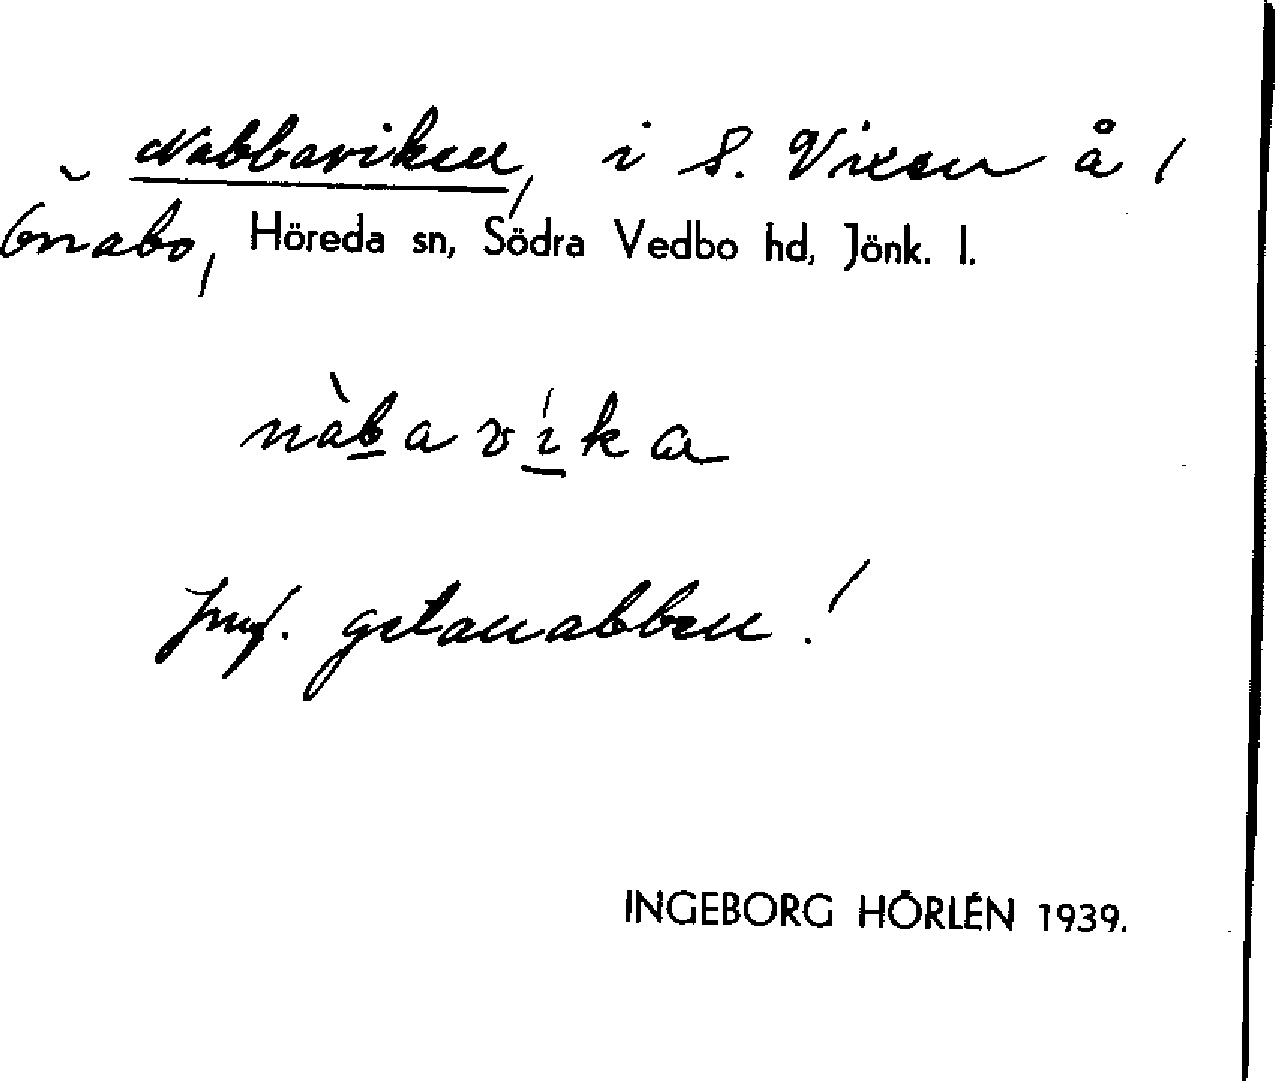 Nabbaviken, i S. Vixen å
Önabo, Höreda sn, Södra Vedbo hd, Jönk. l.
nàbavíka
Jmf. getanabben!
INGEBORG HÖRLÉN 1939.